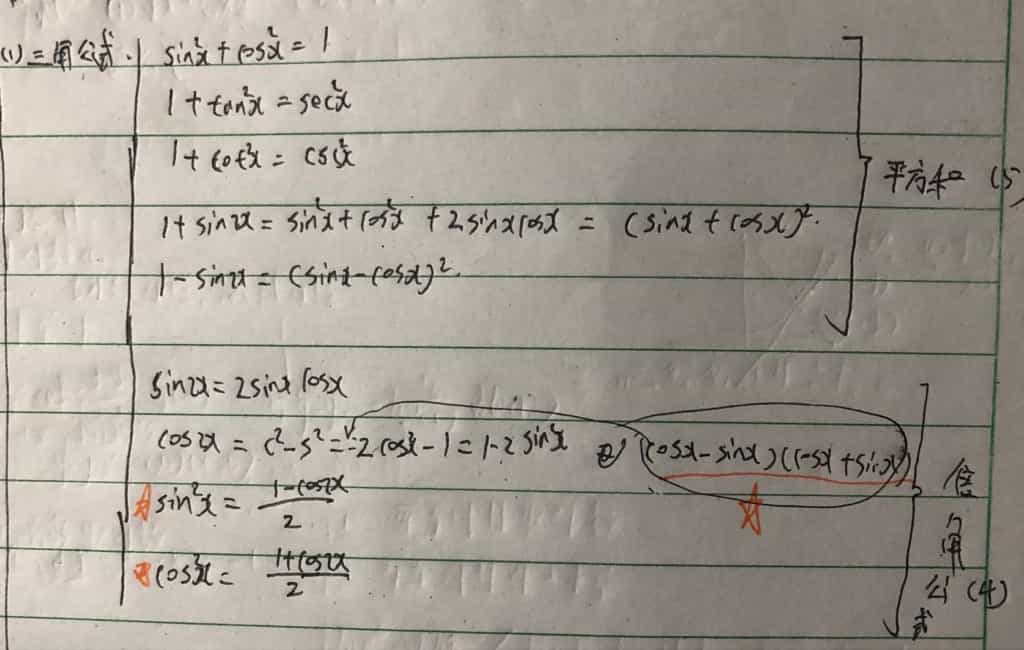 (1) 三角公式. sin²x + cos²x = 1
1 + tan²x = sec²x
1 + cot²x = csc²x
平方和 (5)
1 + sin2x = sin²x + cos²x + 2sinxcosx = (sinx + cosx)².
1 - sin2x = (sinx - cosx)².
sin2x = 2sinx cosx
cos2x = c² - s² = 2cos²x - 1 = 1 - 2sin²x (cosx - sinx)(cosx + sinx)
sin²x = (1 - cos2x)/2
cos²x = (1 + cos2x)/2
倍角公式 (4)